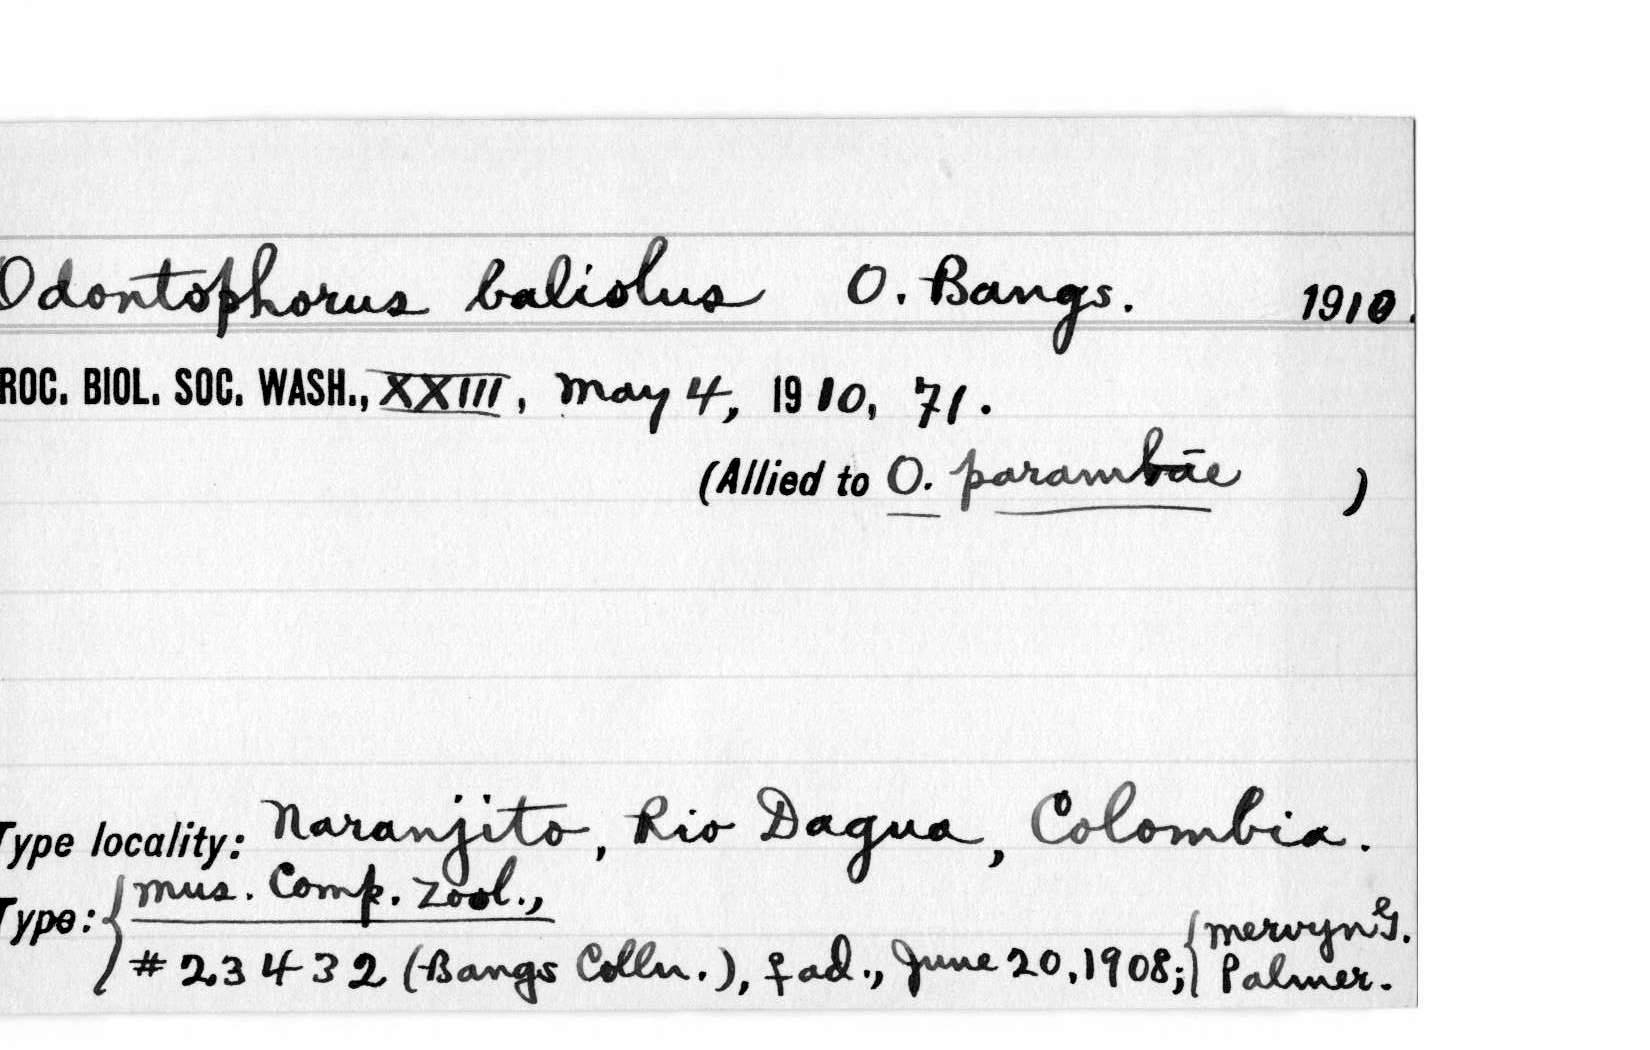 Odontophorus baliolus O. Bangs. 1910.
ROC. BIOL. SOC. WASH., XXIII, May 4, 1910, 71.
(Allied to O. parambae )
Type locality: Naranjito, Rio Dagua, Colombia.
Type: { Mus. Comp. Zool.,
# 23432 (Bangs Colln.), ♀ ad., June 20, 1908; { Mervyn G. Palmer.